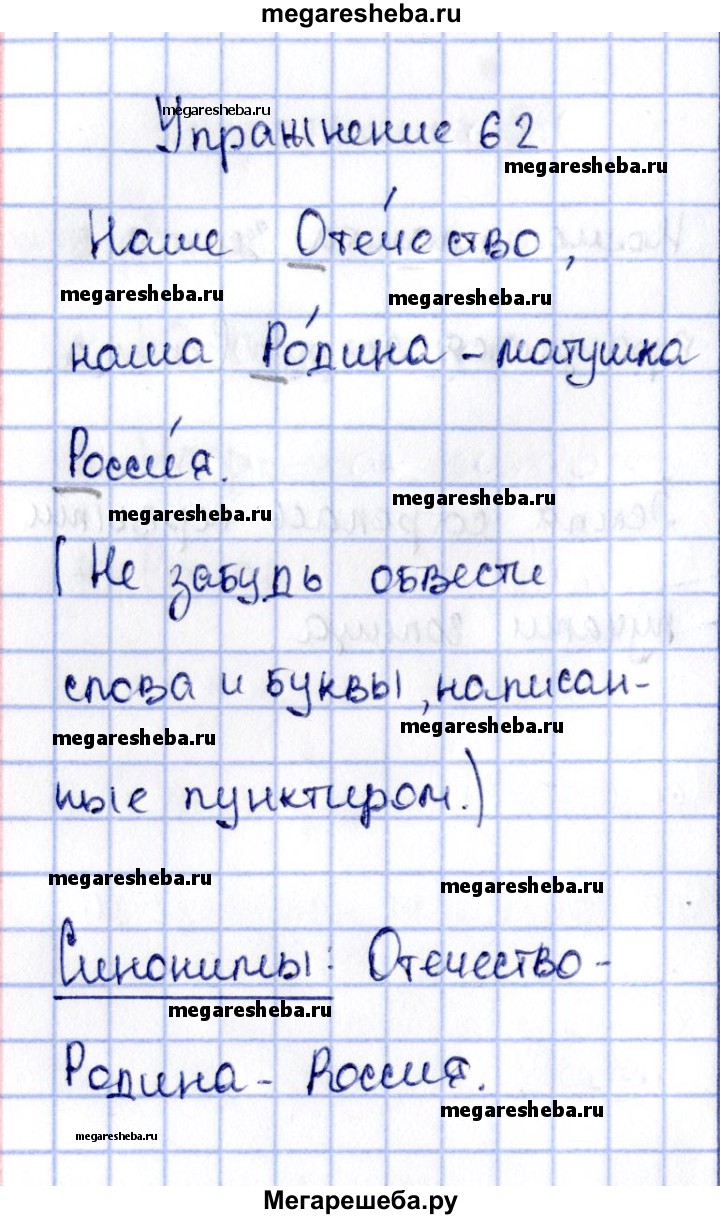 megaresheba.ru
megaresheba.ru
Упражнение 62
megaresheba.ru
Наше Оте́чество,
megaresheba.ru megaresheba.ru
наша Ро́дина - матушка
Росси́я.
megaresheba.ru megaresheba.ru
(Не забудь обвести
слова и буквы, написан-
megaresheba.ru megaresheba.ru
ные пунктиром.)
megaresheba.ru megaresheba.ru
Синонимы: Отечество -
megaresheba.ru
Родина - Россия.
megaresheba.ru
megaresheba.ru
Мегарешеба.ру